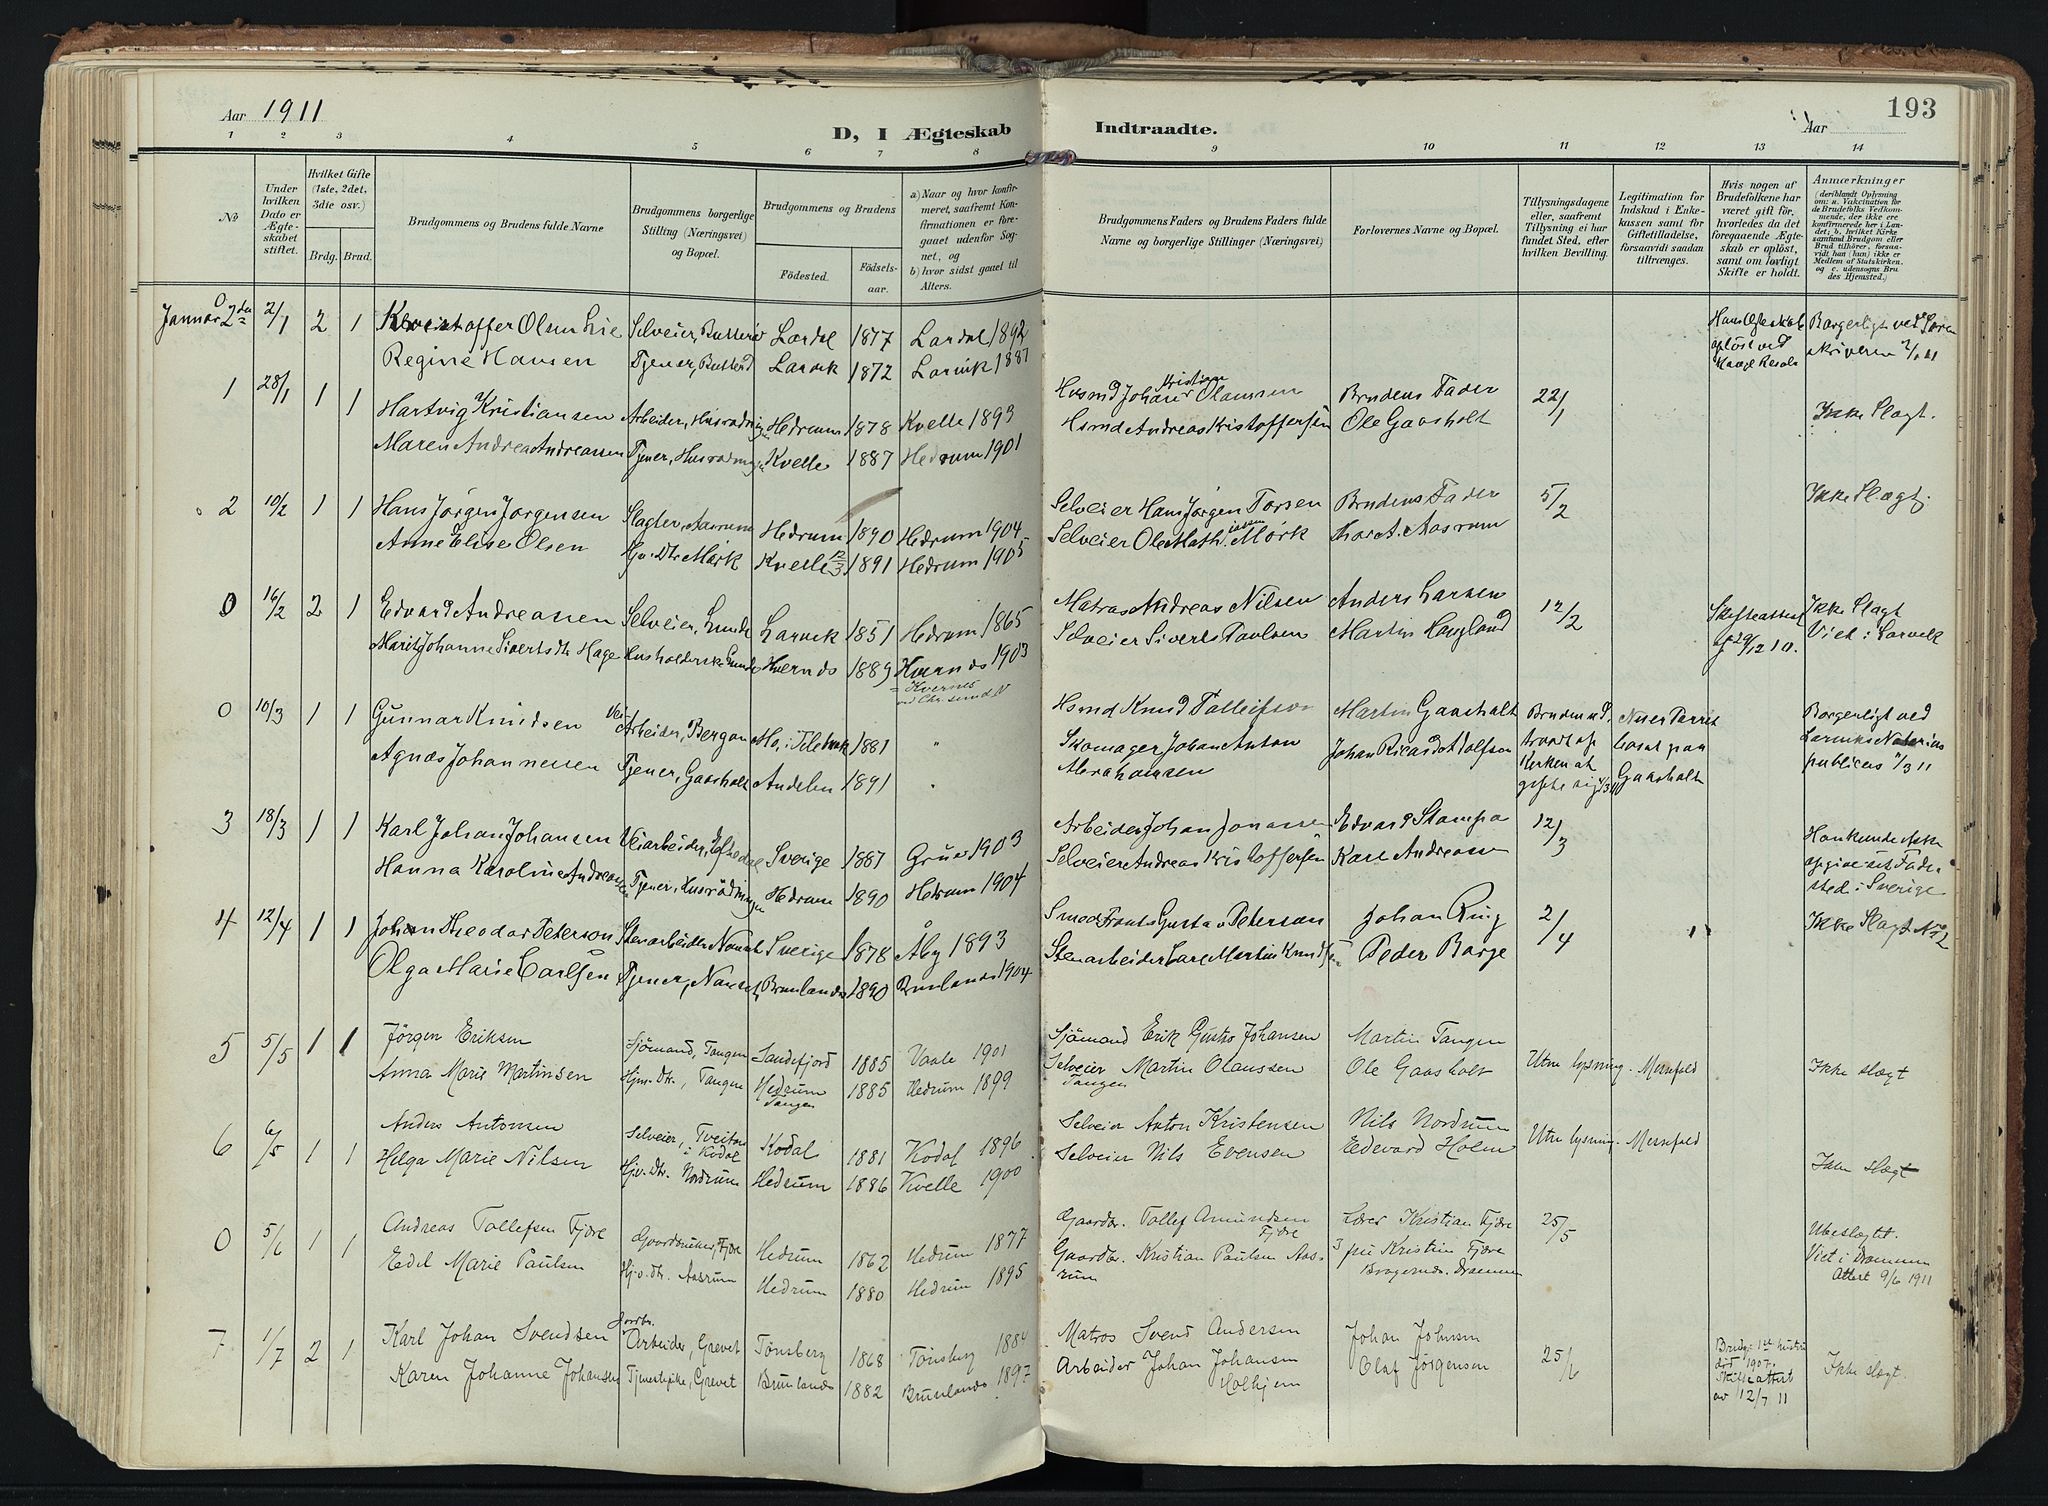 Aar 1911
D, I Ægteskab Indtraadte.
Aar
193
1 2 3 4 5 6 7 8 9 10 11 12 13 14
No
Under hvilken Dato er Ægteskabet stiftet.
Hvilket Gifte (1ste, 2det, 3die osv.)
Brdg. Brud.
Brudgommens og Brudens fulde Navne
Brudgommens borgerlige Stilling (Næringsvei) og Bopæl.
Brudgommens og Brudens
Fødested. Fødselsaar.
a) Naar og hvor konfirmeret, saafremt Konfirmationen er foregaaet udenfor Sognet, og
b) hvor sidst gaaet til Alters.
Brudgommens Faders og Brudens Faders fulde Navne og borgerlige Stillinger (Næringsvei)
Forlovernes Navne og Bopæl.
Tillysningsdagene eller, saafremt Tillysning ei har fundet Sted, efter hvilken Bevilling.
Legitimation for Indskud i Enkekassen samt for Giftetilladelse, forsaavidt saadan tiltrænges.
Hvis nogen af Brudefolkene har været gift før, hvorledes da det foregaaende Ægteskab er opløst, samt om lovligt Skifte er holdt.
Anmærkninger
(deriblandt Oplysning om: a. Vakcination for de Brudefolks Vedkommende, der ikke ere konfirmerede her i Landet; b. hvilket Kirkesamfund Brudgom eller Brud tilhører, forsaavidt han (hun) ikke er Medlem af Statskirken, og c. udensogns Brudes Hjemsted.)
Januar 0 2/1 2 1 Kristoffer Olsen Lie Selveier, Lardal 1877 Lardal 1892 Hans Ægteskab opløst ved Borgerligt ved Soren
Regine Hansen Tjener, Larvik 1872 Larvik 1887 skriveren 2/1 11
1 28/1 1 1 Hartvig Kristiansen Arbeider, Husrødningen Hedrum 1878 Kvelle 1893 Hsmd Johan Kristian Olaussen Brudens Fader 22/1 Ikke Slægt.
Maren Andrea Andreassen Tjener, Husrødningen Kvelle 1887 Hedrum 1901 Hsmd Andreas Kristoffersen Ole Gaasholt
2 10/2 1 1 Hans Jørgen Jørgensen Slagter, Aasrum Hedrum 1890 Hedrum 1904 Selveier Hans Jørgen Torsen Brudens Fader 5/2 Ikke Slægt.
Anne Elise Olsen Hjv. Dtr Mørk Kvelle 12/3 1891 Hedrum 1905 Selveier Ole Math.iassen Mørk A. Aasrum
0 16/2 2 1 Edvard Andreassen Selveier, Lunde Larvik 1851 Hedrum 1865 Matros Andreas Nilsen Anders Larsen 12/2 Skifteattest Ikke Slægt
Marit Johanne Siverts dtr Hage Husholderske Lunde Kvernds 1889 Kvernds 1903 Selveier Siverts Paulsen Martin Haugland 29/12 10. Viet i Larvik
= Kvernes
0 10/3 1 1 Gunnar Knudsen Veiarbeider, Bergan Mo, i Telemark 1881 " Hsmd Knud Tolleifson Martin Gaasholt Borgerligt ved
Agnæs Johannessen Tjener, Gaasholt Andebu 1891 " Skomager Johan Anton Abrahamsen Johan Rikard Adolfsen Kirken at Gaasholt Larviks Notarius publicus 3 11
3 18/3 1 1 Karl Johan Johansen Veiarbeider, Sverige 1887 Grue 1903 Arbeider Johan Jonassen Edvard Stampa 12/3 Han kunde ikke
Hanna Karoline Andreassen Tjener, Husrødningen Hedrum 1890 Hedrum 1904 Selveier Andreas Kristoffersen Karl Andreasen opgive sit Fødested i Sverige
4 12/4 1 1 Johan Theodor Peterson Stenarbeider Nanset Sverige 1878 Åby 1893 Smed Frants Gustav Peterson Johan Ring 2/4 Ikke Slægt No 2
Olga Marie Carlsen Tjener, Nanset Brunlandes 1890 Brunlands 1904 Stenarbeider Carl Martin Knudsen Peder Borge
5 5/5 1 1 Jørgen Eriksen Sjømand, Tangen Sandefjord 1885 Vaale 1901 Sjømand Erik Gustav Johansen Martin Tangen Uten lysning. Messefald Ikke slægt
Anna Marie Martinsen Hjv. Dtr., Tangen Hedrum Tangen 1885 Hedrum 1899 Selveier Martin Olaussen Tangen Ole Gaasholt
6 6/5 1 1 Anders Antonsen Selveier, Tveitan i Kodal Kodal 1881 Kodal 1896 Selveier Anton Kristensen Nils Nordrum Uten lysning. Messefald Ikke slægt
Helga Marie Nilsen Hjv. Dtr. Nordrum Hedrum 1886 Kvelle 1900 Selveier Nils Evensen Edevard Holm
0 5/6 1 1 Andreas Tollefsen Fjære Gaardbruker, Fjære Hedrum 1862 Hedrum 1877 Gaardbr. Tollef Amundsen Fjære Lærer Kristian Fjære 25/5 Ubeslægtet.
Edel Marie Paulsen Hjv. dtr. Aasrum Hedrum 1880 Hedrum 1895 Gaardbr. Kristian Paulsen Aasrum Kristin Fjære Bragernæs. Drammen Viet i Drammen Attest 9/6 1911
7 1/7 2 1 Karl Johan Svendsen Jordbr. Arbeider, Grevet Tønsberg 1868 Tønsberg 1884 Matros Svend Andersen Johan Johnsen 25/6 Brudg. 1ste hustru død 1907. Skifteattest av 12/7 11 Ikke slægt.
Karen Johanne Johansen Tjenestepike, Grevet Brunlandes 1882 Brunlandes 1897 Arbeider Johan Johansen Holhjem Olaf Jørgensen